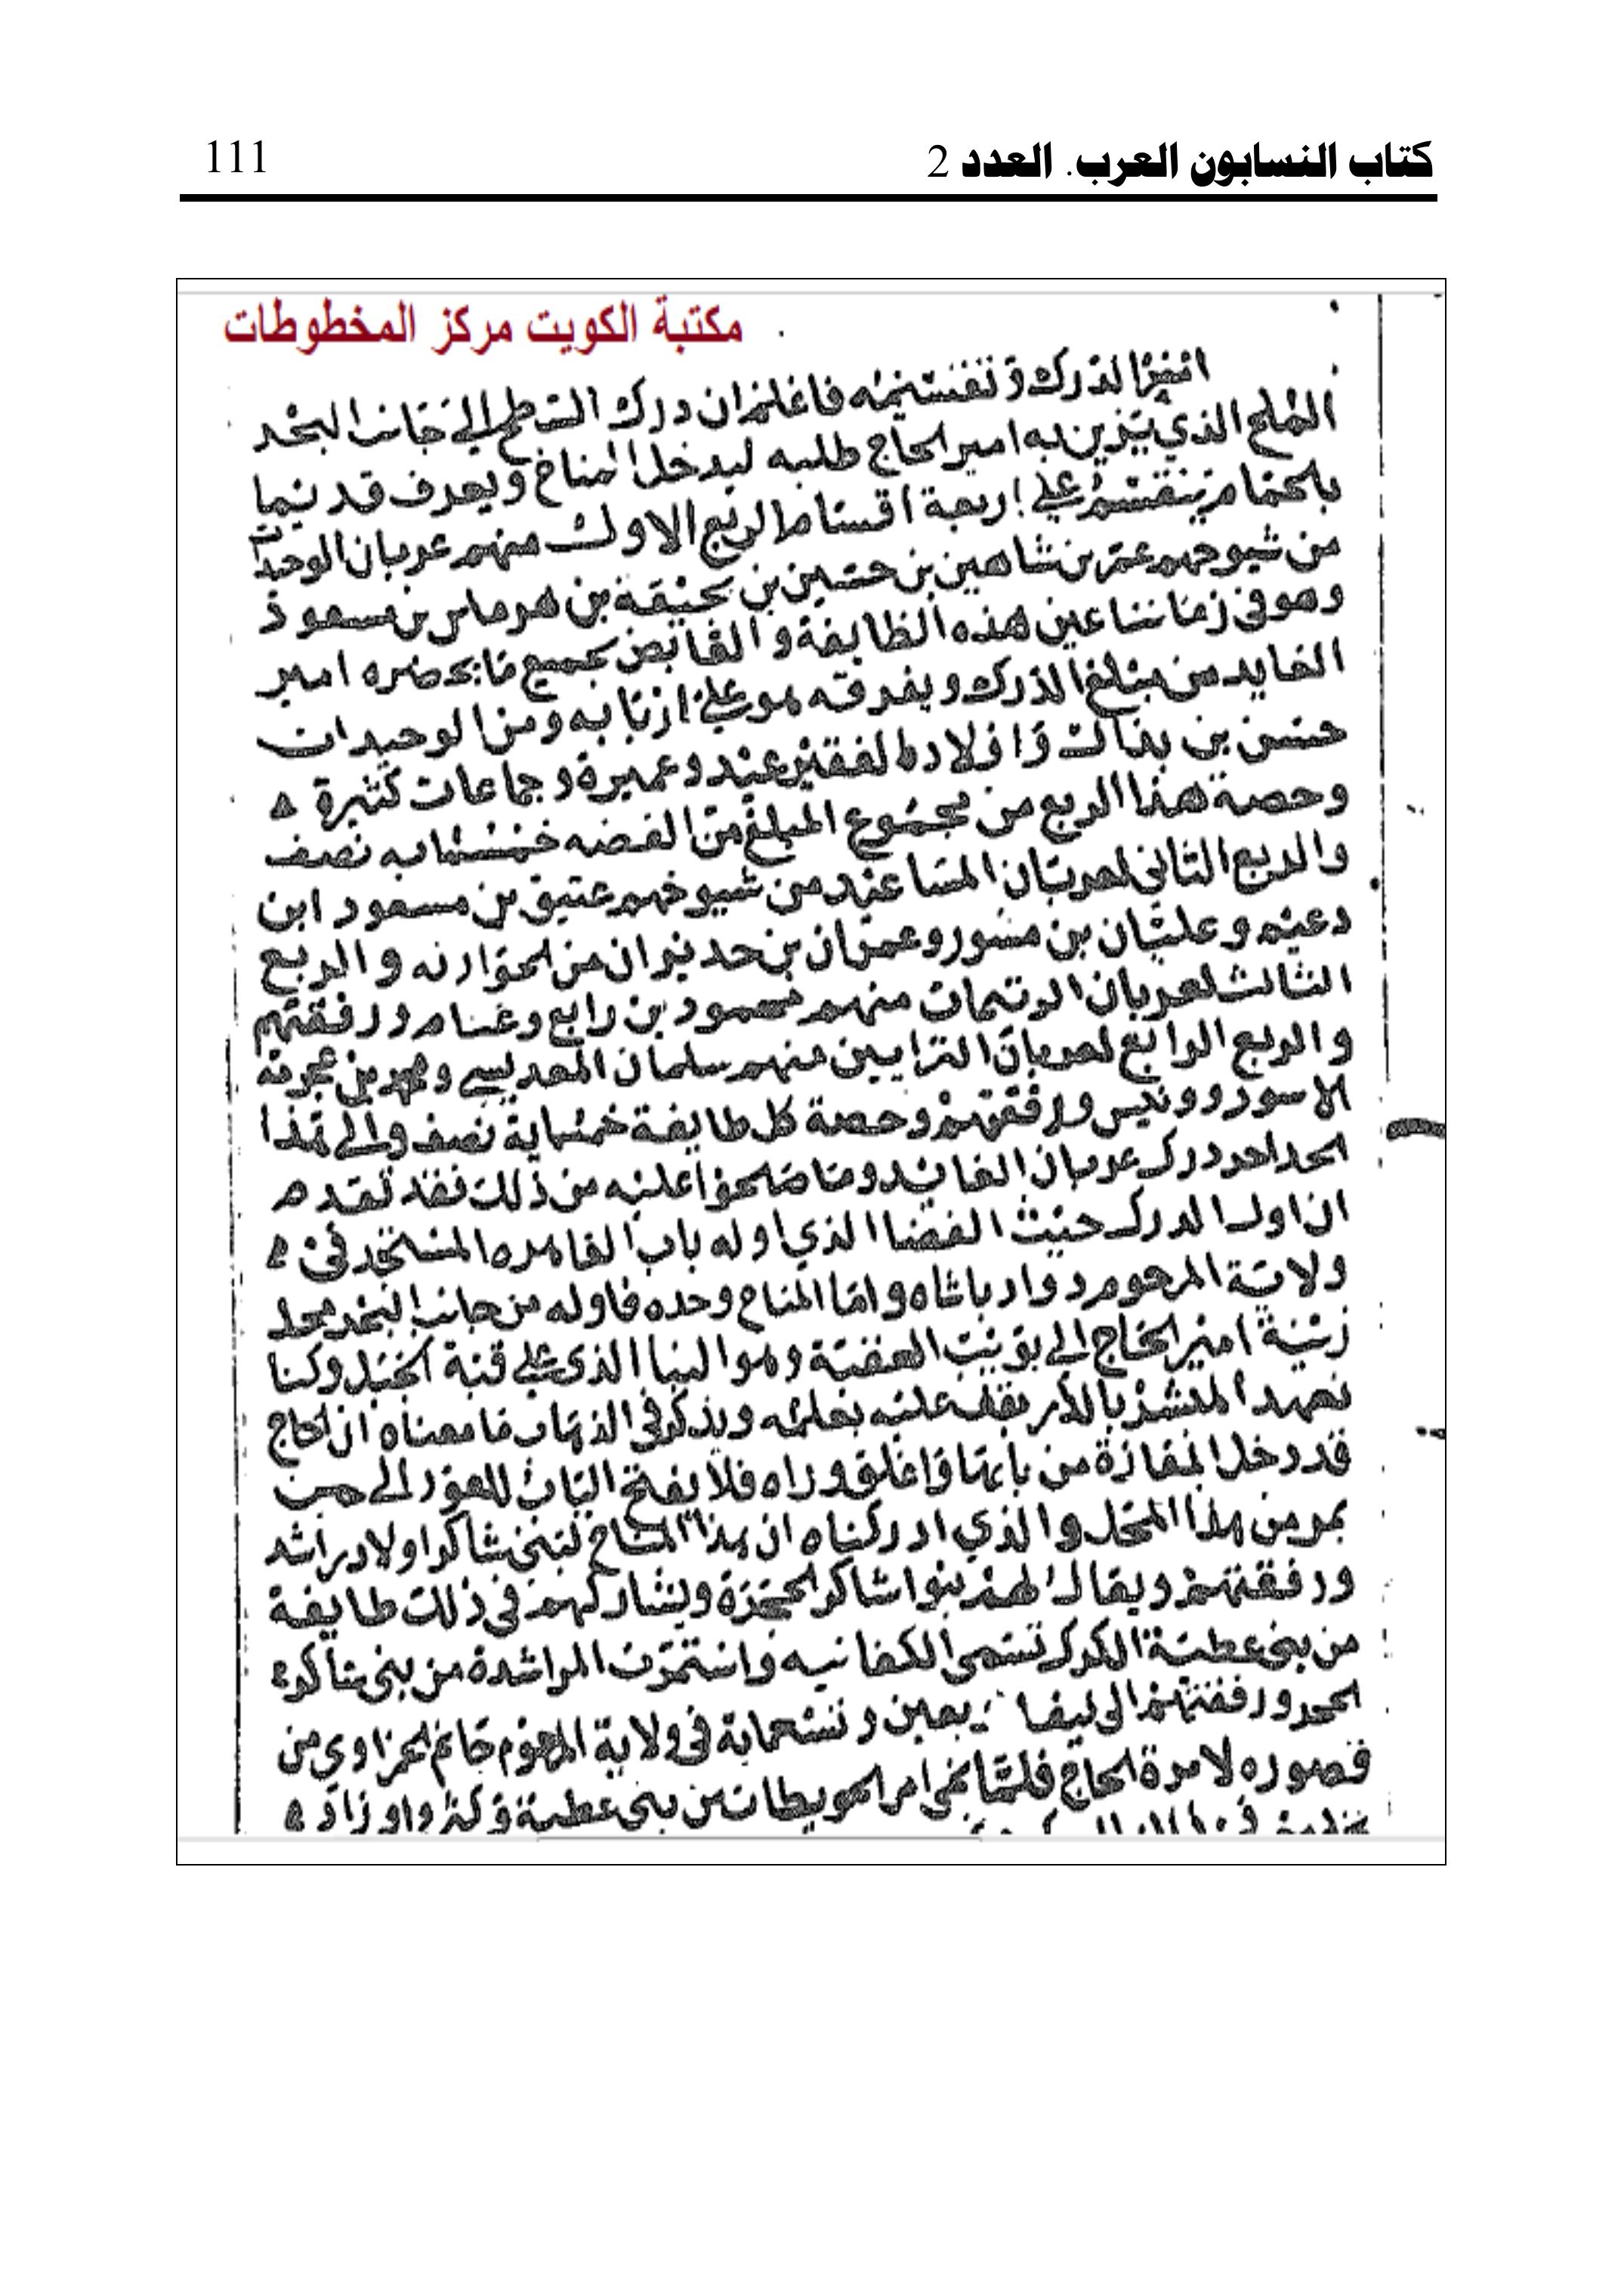 كتاب النسابون العرب. العدد 2
111
مكتبة الكويت مركز المخطوطات
الدرك وتقسيمه فاعلم ان درك السطح الي جانب البحر
الملح الذي يتزين به امير الحاج طلبه ليدخل المناخ ويعرف قديما
بالحمام ينقسم علي اربعة اقسام الربع الاول منهم عربان الوحيدات
من شيوخهم عمر بن شاهين بن حسين بن بن هرماس بن مسعود
وهو في زماننا عين هذه الطايفة والقابض بجميع ما يحضره امير
من مبلغ الدرك ويفرقه هو علي اربابه ومن الوحيدات
حسن بن واولاد الفقير عيد وعميرة وجماعات كثيرة
وحصة هذا الربع من مجموع المبلغ من الفضه خمسمايه نصف
والربع الثاني لعربان المساعيد من شيوخهم عتيق بن مسعود ابن
دعيم وعليان بن وعمران بن من والربع
الثالث لعربان الرتيمات منهم مسعود بن رابع وغنام ورفقتهم
والربع الرابع لعربان الترابين منهم سلمان وفهد بن
الاسود ورفقتهم وحصة كل طايفة خمسماية نصف والي هذا
الحد اخر درك عربان وما عليه من ذلك فقد تقدم
ان اول الدرك حيث الفضا الذي اوله باب القاهره المستجد في
ولاية المرحوم داود باشاه واما المناخ وحده فاوله من جانب البحر محل
زينة امير الحاج الي بويب العقبة وهو البنا الذي علي قنة الجبل وكنا
نعهد يقف عليه ويذكر في الذهاب ما معناه ان الحاج
قد دخل المفازة من بابها واغلق وراه فلا يفتح الباب للعود الي حين
يمر من هذا المحل والذي ادركناه ان هذا المناخ لبني شاكر اولاد راشد
ورفقتهم ويقال لهم بنوا شاكر ويشاركهم في ذلك طايفة
من بني عطية الكرك تسمي الكفانيه واستمرت المراشدة من بني شاكر
ورفقتهم الي وتسعماية في ولاية المرحوم جانم الحمزاوي من
قصوره لامرة الحاج فلما امر الحويطات من بني عطية وكثروا وزاد